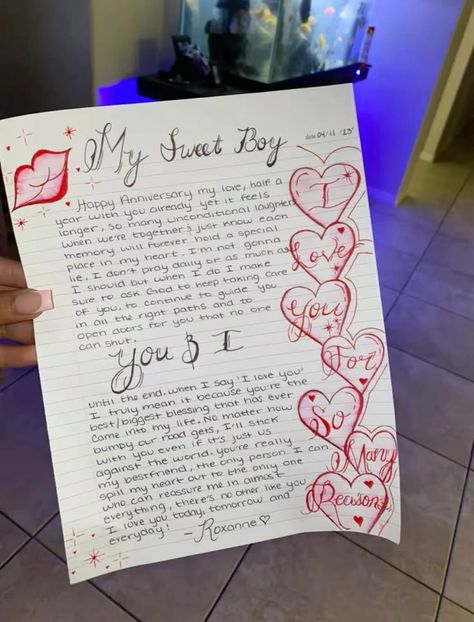 My Sweet Boy
date 04/11/'23'
Happy Anniversary my love, half a
year with you already yet it feels
longer, so many unconditional laughter
when we're together, just know each
memory will forever hold a special
place in my heart. I'm not gonna
lie, I don't pray daily or as much as
I should but when I do I make
sure to ask God to keep taking care
of you, to continue to guide you
in all the right paths and to
open doors for you that no one
can shut.
You & I
until the end. when I say 'I love you'
I truly mean it because you're the
best/biggest blessing that has ever
came into my life. No matter how
bumpy our road gets, I'll stick
with you even if it's just us
against the world. you're really
my bestfriend, the only person I can
spill my heart out to the only one
who can reassure me in almost
everything, there's no other like you
I love you today, tomorrow and
everyday!
-Roxanne
I
Love
You
For
So
Many
Reasons